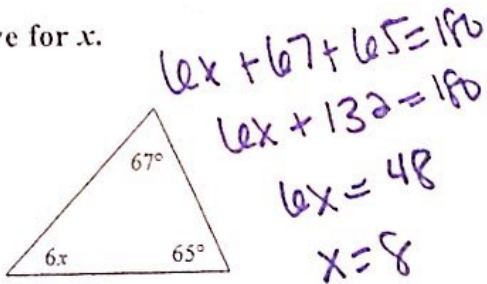 e for x.
6x + 67 + 65 = 180
6x + 132 = 180
6x = 48
x = 8
67°
6x
65°